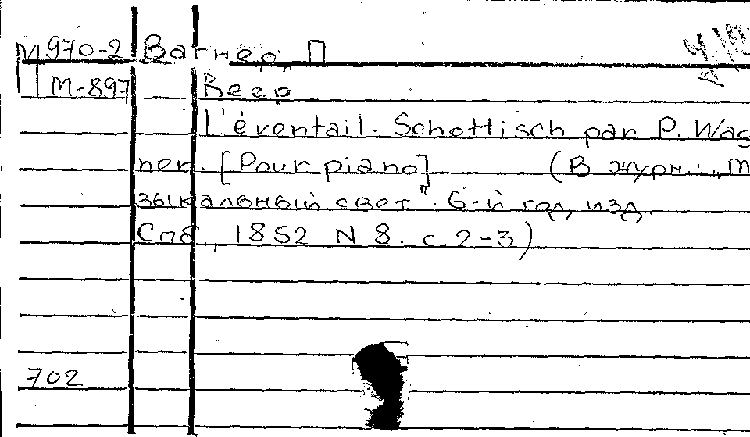 М 970-2 Вагнер, П
М-897 Веер
L'éventail. Schottisch par P. Wag
ner. [Pour piano] (В журн. „М
зыкальный свет". 6-й год изд.
Спб, 1852 N 8. с 2-3)
702